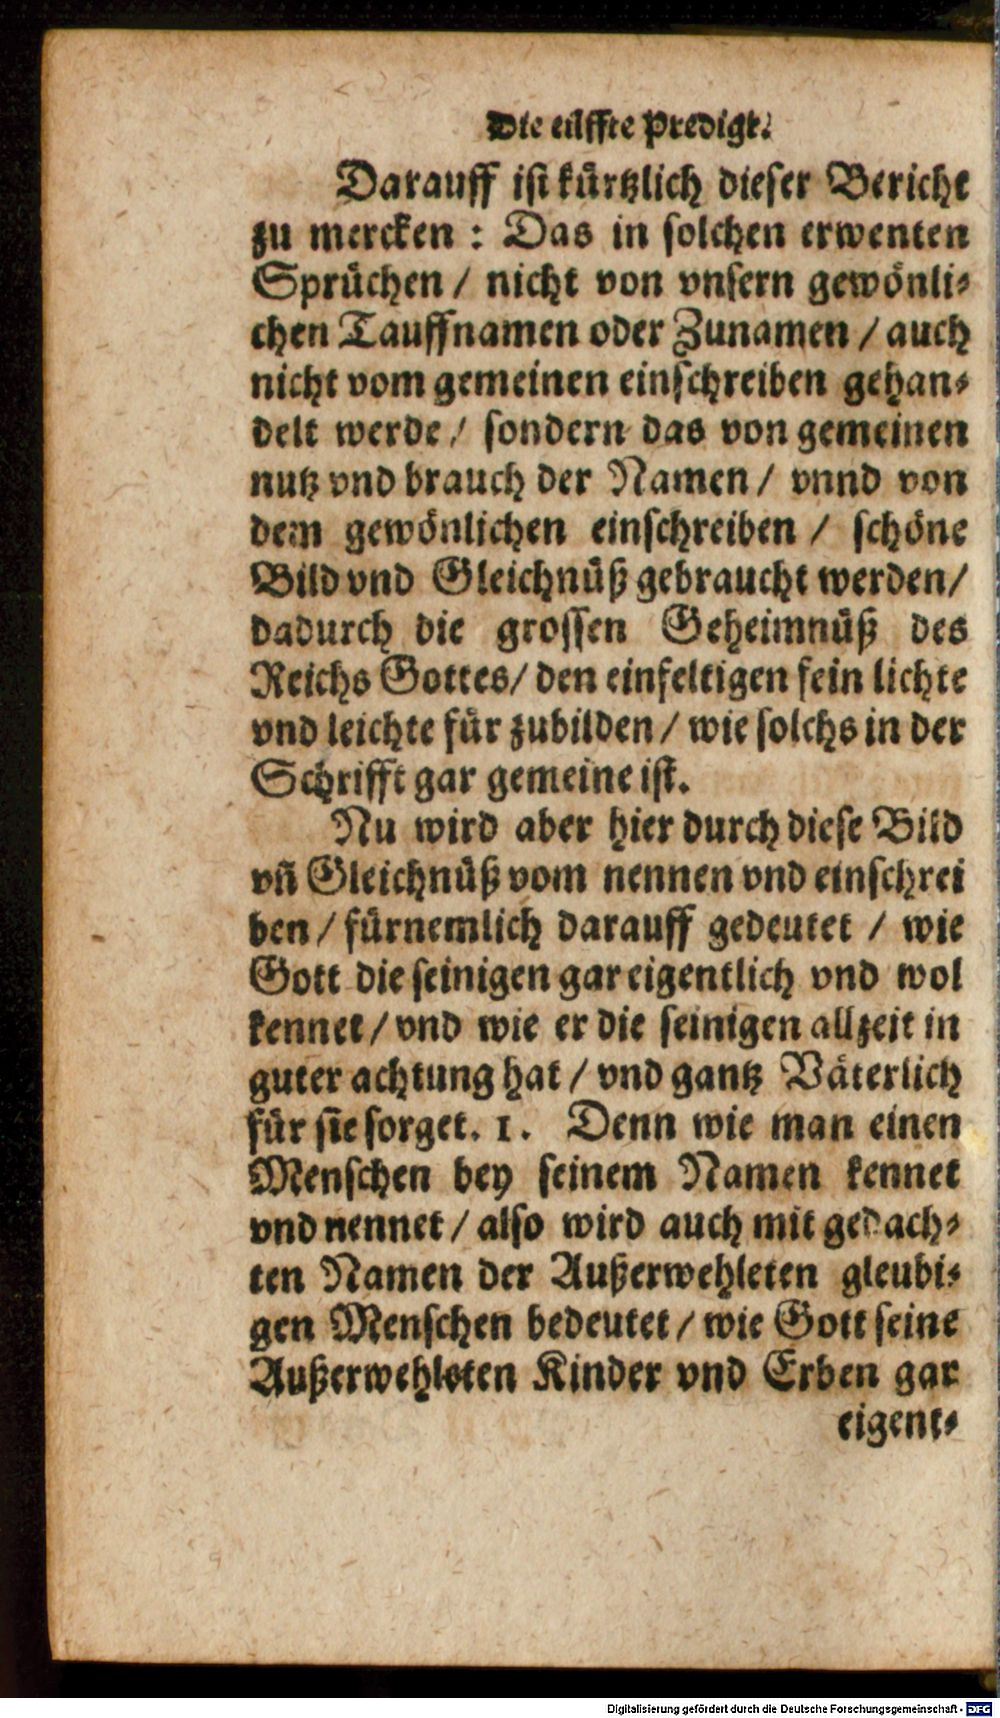 Die eilffte Predigt.
Darauff ist kürtzlich dieser Bericht
zu mercken : Das in solchen erwenten
Sprüchen / nicht von vnsern gewönli⸗
chen Tauffnamen oder Zunamen / auch
nicht vom gemeinen einschreiben gehan⸗
delt werde / sondern das von gemeinen
nutz vnd brauch der Namen / vnnd von
dem gewönlichen einschreiben / schöne
Bild vnd Gleichnüß gebraucht werden /
dadurch die grossen Geheimnüß des
Reichs Gottes / den einfeltigen fein lichte
vnd leichte für zubilden / wie solchs in der
Schrifft gar gemeine ist.
Nu wird aber hier durch diese Bild
vñ Gleichnüß vom nennen vnd einschrei
ben / fürnemlich darauff gedeutet / wie
Gott die seinigen gar eigentlich vnd wol
kennet / vnd wie er die seinigen allzeit in
guter achtung hat / vnd gantz Väterlich
für sie sorget. 1. Denn wie man einen
Menschen bey seinem Namen kennet
vnd nennet / also wird auch mit gedach⸗
ten Namen der Außerwehleten gleubi⸗
gen Menschen bedeutet / wie Gott seine
Außerwehleten Kinder vnd Erben gar
eigent⸗
Digitalisierung gefördert durch die Deutsche Forschungsgemeinschaft - DFG